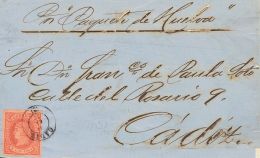 Pr "Paquete de Huelva"
Sr. Dn. Franco. de Paula Soto
Calle del Rosario 9.
Cádiz.